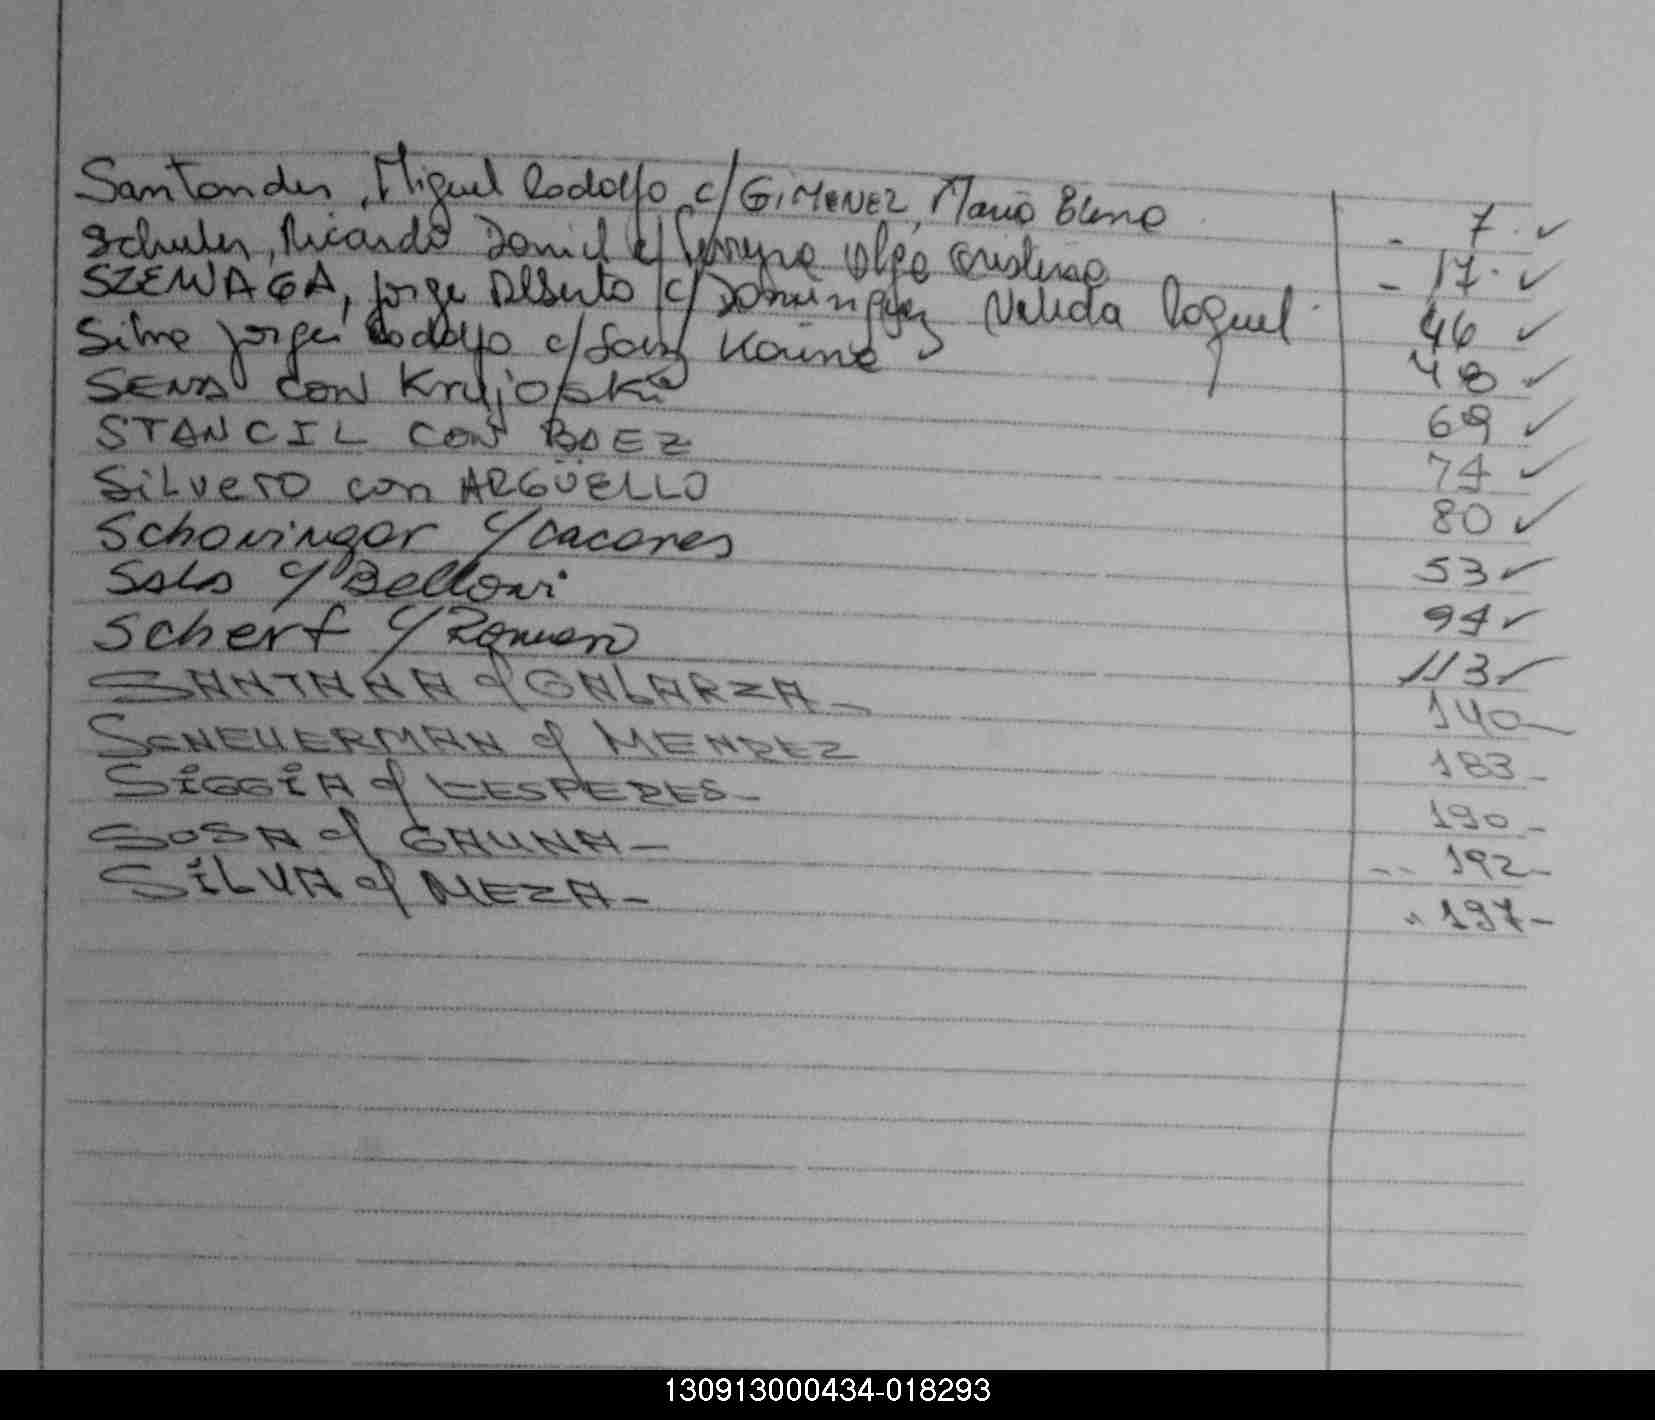 Santander, Miguel Rodolfo c/ GIMENEZ, María Elena - 7. ✓
Schuler, Ricardo Daniel c/ Olga Cristina - 17. ✓
SZEWAGA, Jorge Alberto c/ Dominguez Nelida Raquel. 46 ✓
Silva Jorge Rodolfo c/ Karina 48 ✓
SENA CON Krujoski 69 ✓
STANCIL CON BAEZ 74 ✓
SILVERO con ARGÜELLO 80 ✓
Schoningor c/ Caceres 53 ✓
Sala c/ Belloni 94 ✓
Scherf c/ Romero 113 ✓
SANTANA c/ GALARZA - 140 -
SCHEUERMAN c/ MENDEZ 183 -
SIGGIA c/ LESPERES - 190 -
SOSA c/ GAUNA - 192 -
SILVA c/ MEZA - " 197 -
130913000434-018293